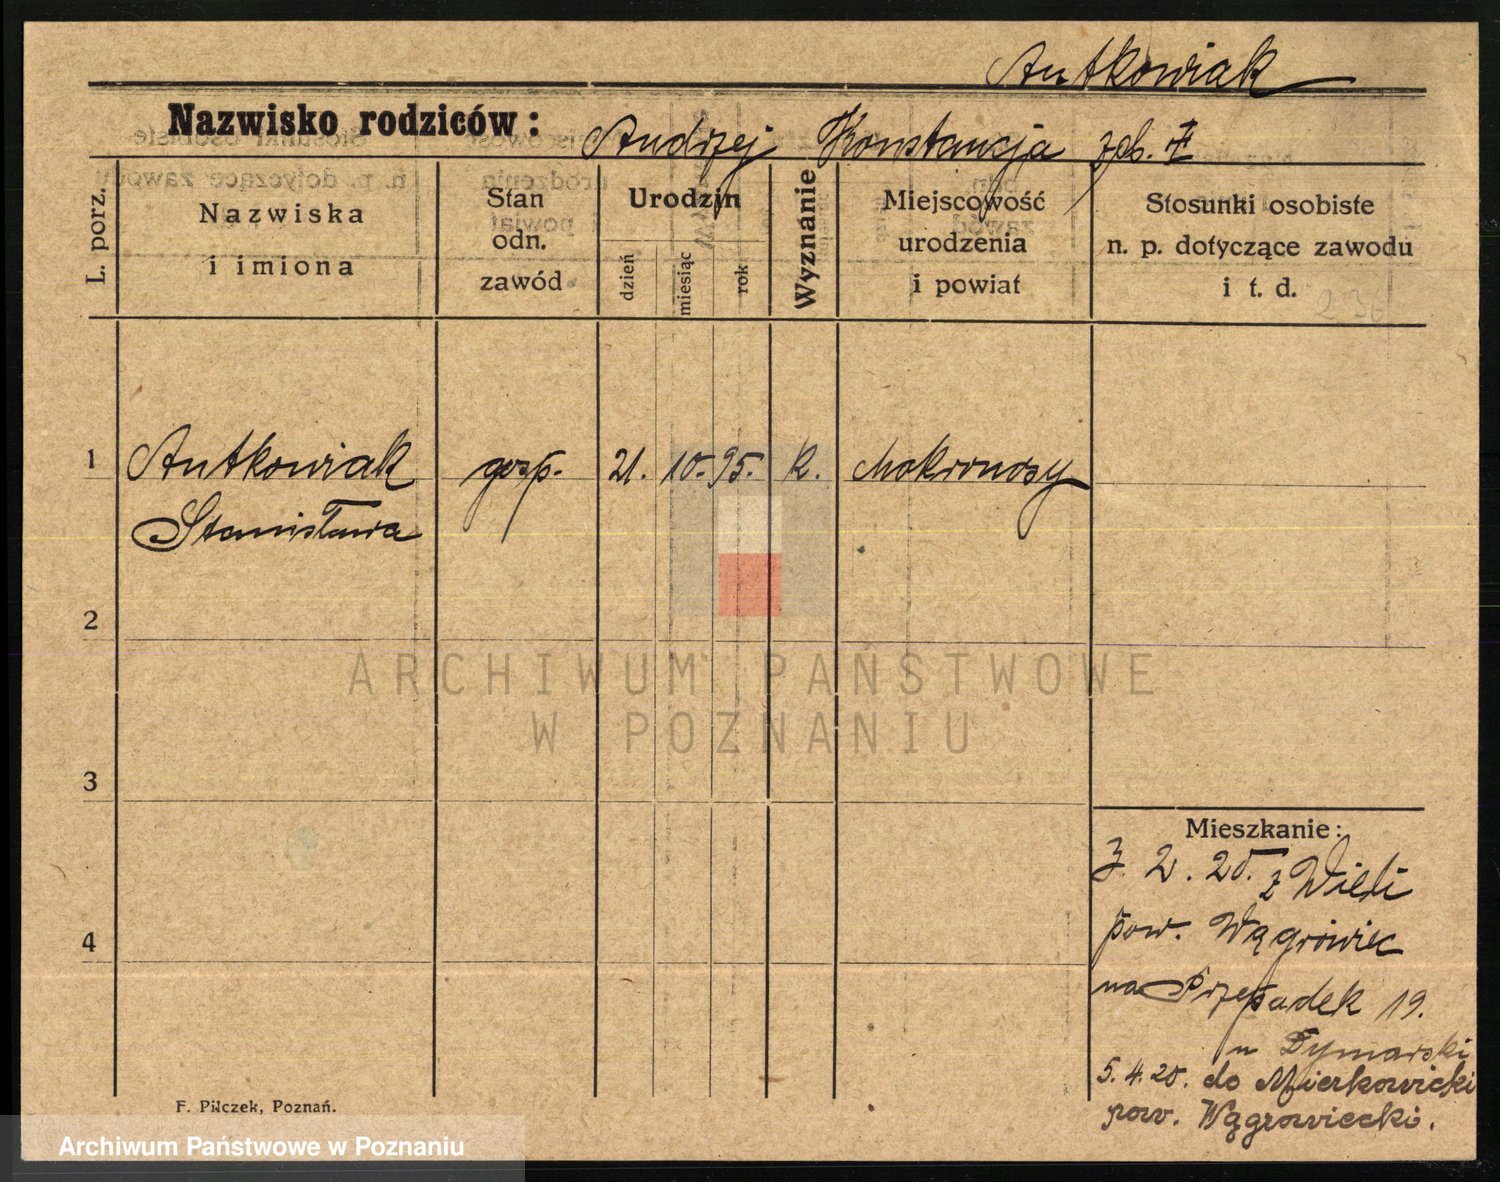 Antkowiak
Nazwisko rodziców: Andrzej Konstancja zd. Z
L. porz.
Nazwiska
i imiona
Stan
odn.
zawód
Urodzin
dzień
miesiąc
rok
Wyznanie
Miejscowość
urodzenia
i powiat
Stosunki osobiste
n. p. dotyczące zawodu
i t. d.
236
1 Antkowiak gosp. 21. 10. 95. k. Mokronosy
Stanisława
2
ARCHIWUM PAŃSTWOWE
W POZNANIU
3
Mieszkanie:
3. 2. 20. z
pow. Wągrówiec
4
na Przepadek 19.
u Dymarski
5. 4. 20. do
pow. Wągrowiecki.
F. Pilczek, Poznań.
Archiwum Państwowe w Poznaniu